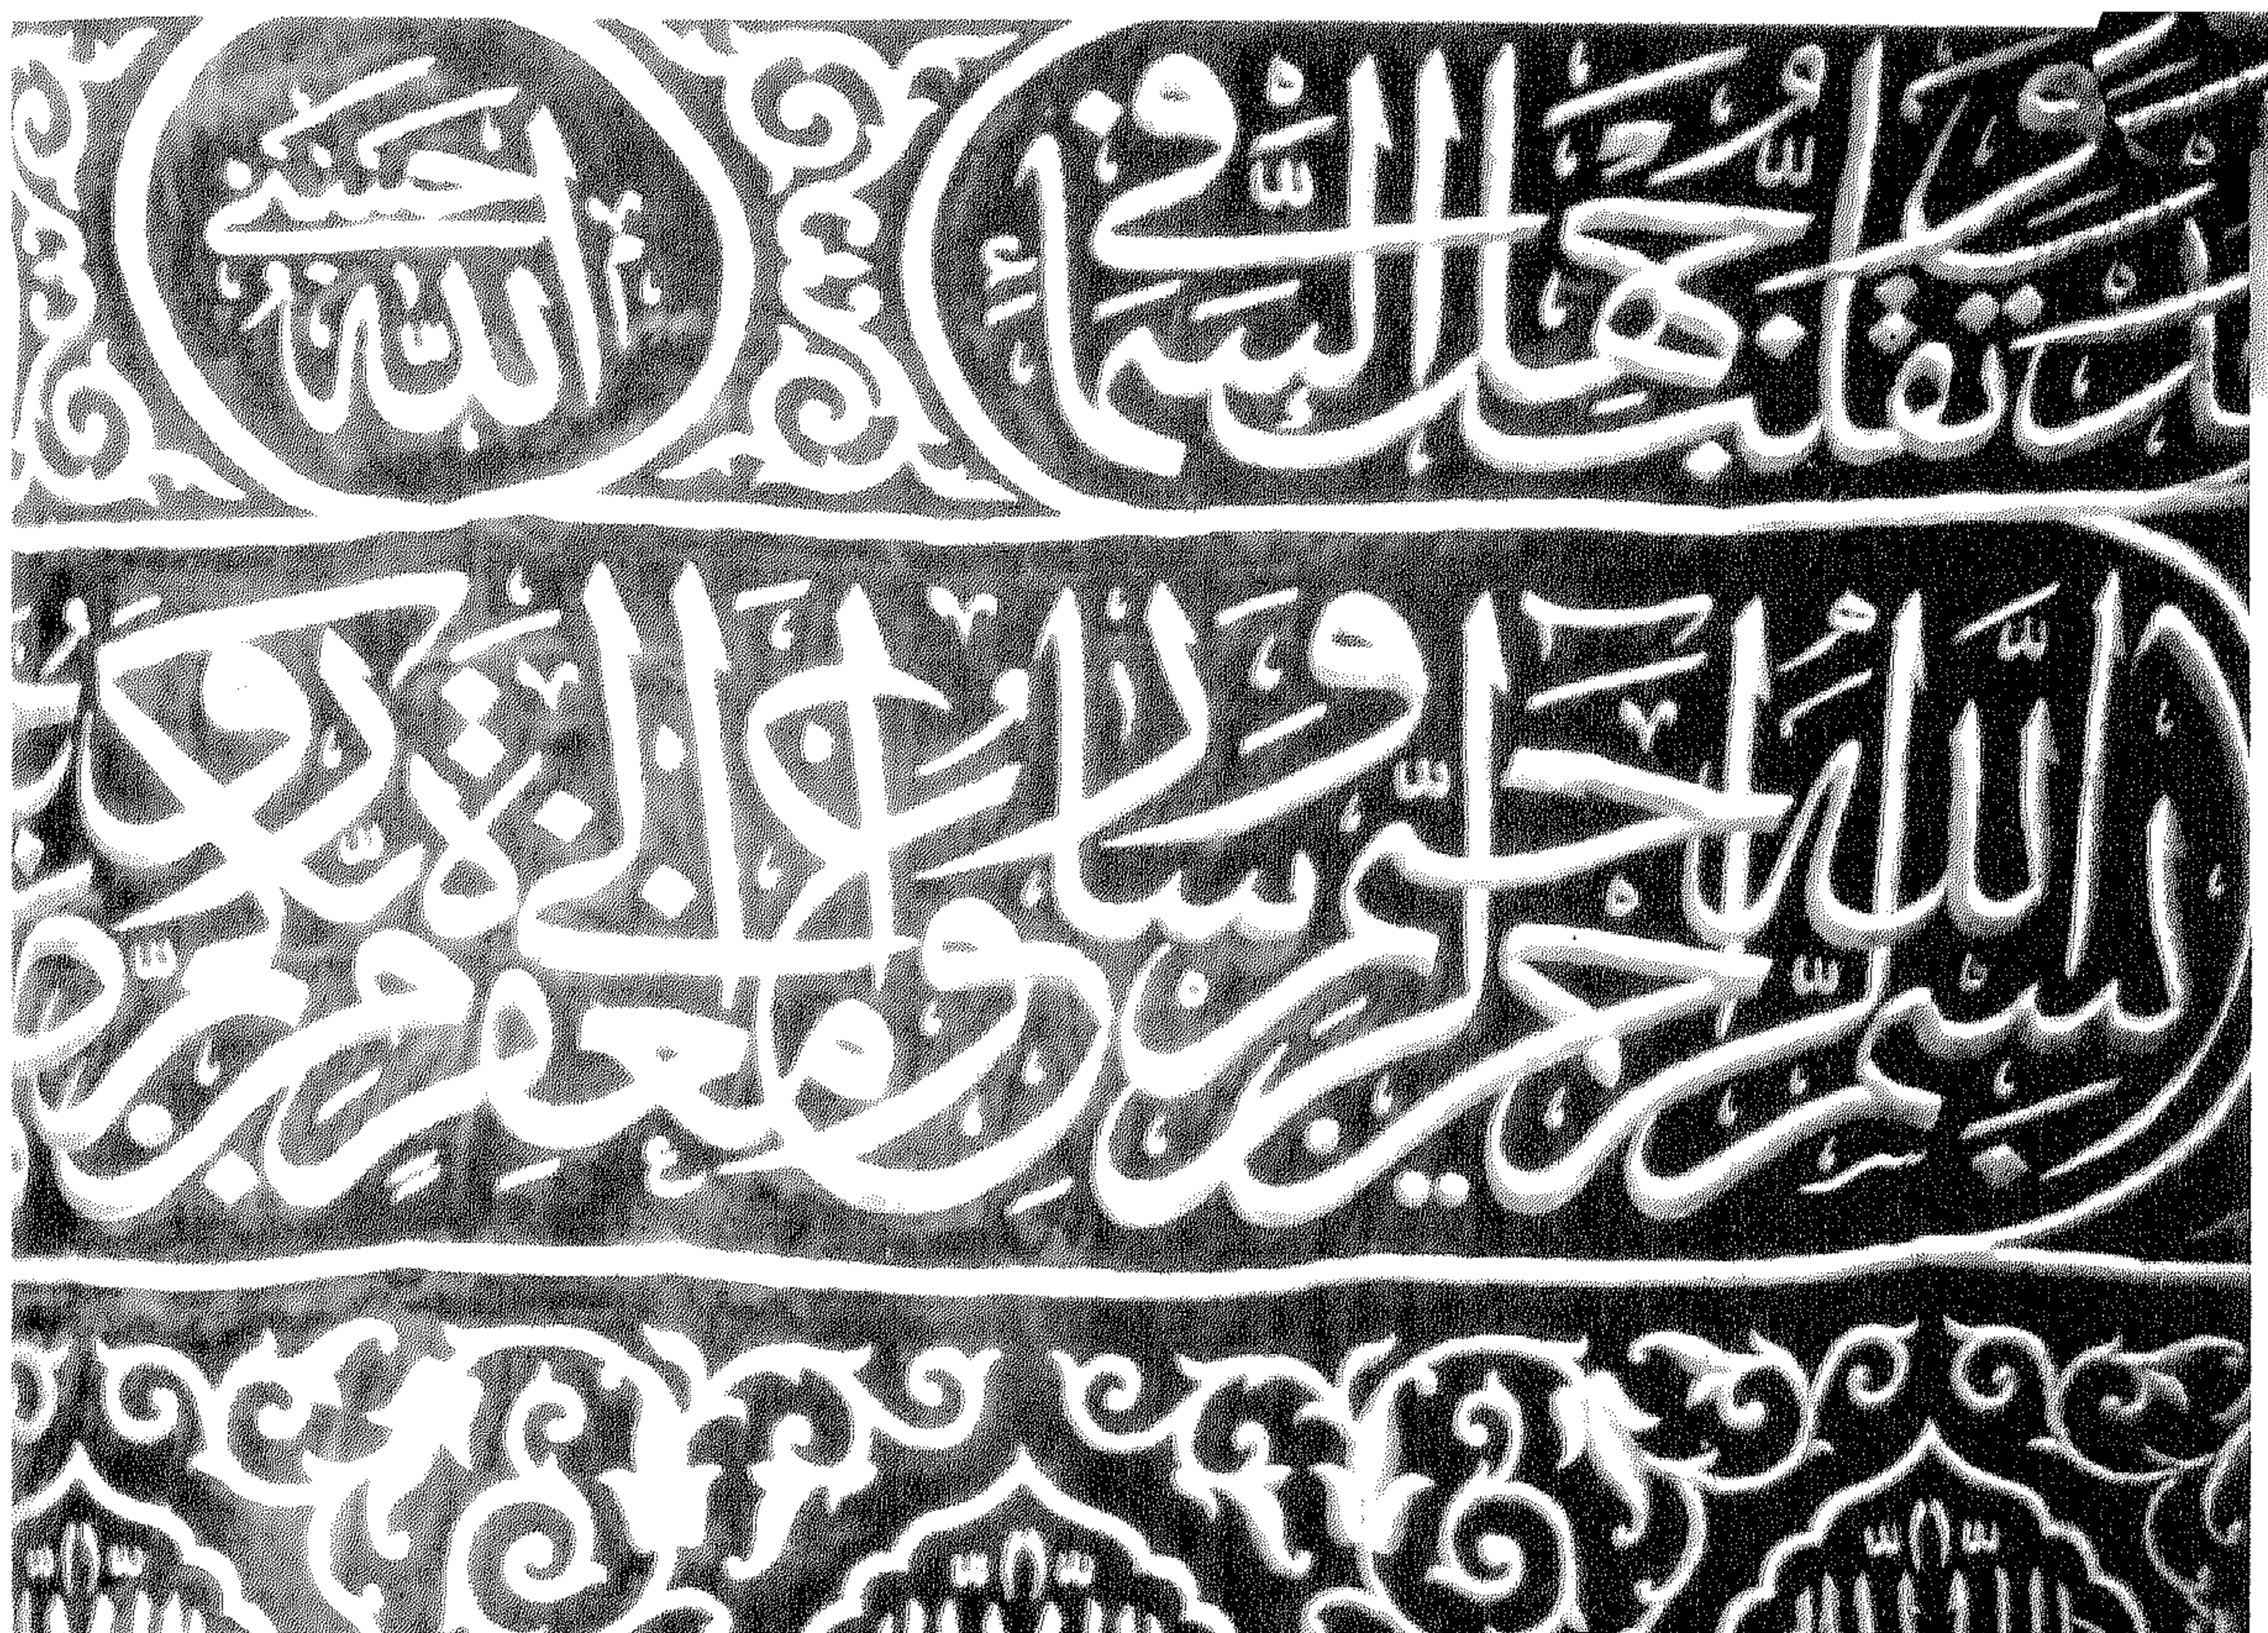 تقلب وجهك في السماء
الله حسبي
بسم الله الرحمن الرحيم وسارعوا إلى مغفرة من ربكم